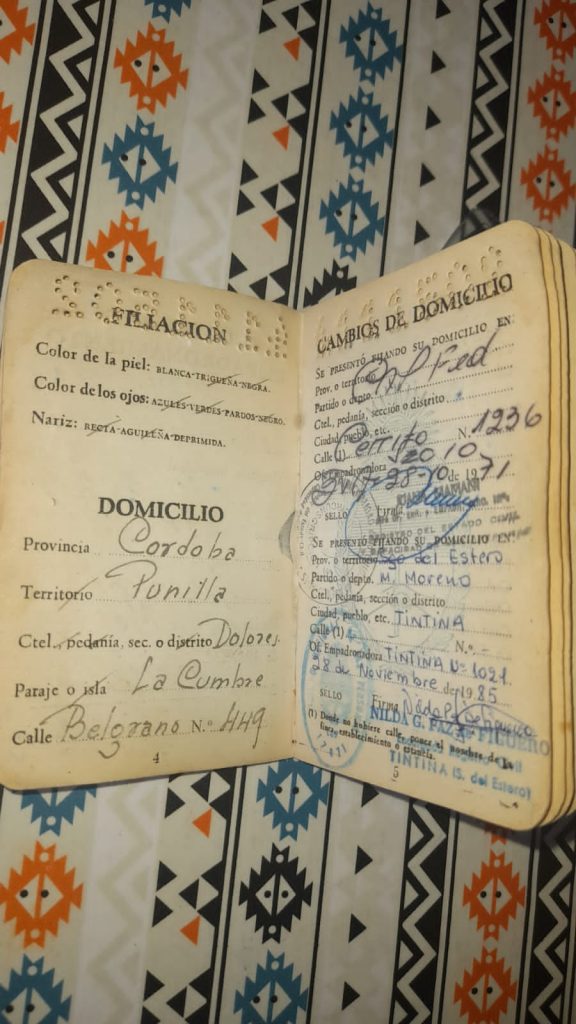 FILIACION
Color de la piel: BLANCA-TRIGUEÑA-NEGRA.
Color de los ojos: AZULES-VERDES-PARDOS-NEGRO.
Nariz: RECTA-AGUILEÑA-DEPRIMIDA.
DOMICILIO
Provincia Cordoba
Territorio Punilla
Ctel., pedanía, sec. o distrito Dolores
Paraje o isla La Cumbre
Calle Belgrano N.º 449
4
CAMBIOS DE DOMICILIO
SE PRESENTÓ FIJANDO SU DOMICILIO EN:
Prov. o territorio Fed
Partido o depto.
Ctel., pedanía, sección o distrito
Ciudad, pueblo, etc.
Calle (1) Cerrito N.º 1236
Of. Empadronadora 2010
28-10 de 1971
SELLO Firma
SE PRESENTÓ FIJANDO SU DOMICILIO EN:
Prov. o territorio Sgo del Estero
Partido o depto. M. Moreno
Ctel., pedanía, sección o distrito
Ciudad, pueblo, etc. TINTINA
Calle (1) N.º -
Of. Empadronadora TINTINA Nº 1021.
28 de Noviembre de 1985
SELLO Firma
NILDA G. PAZ de FIGUERO
(1) Donde no hubiere calle, poner el nombre de la
finca, establecimiento o estancia.
TINTINA (S. del Estero)
5